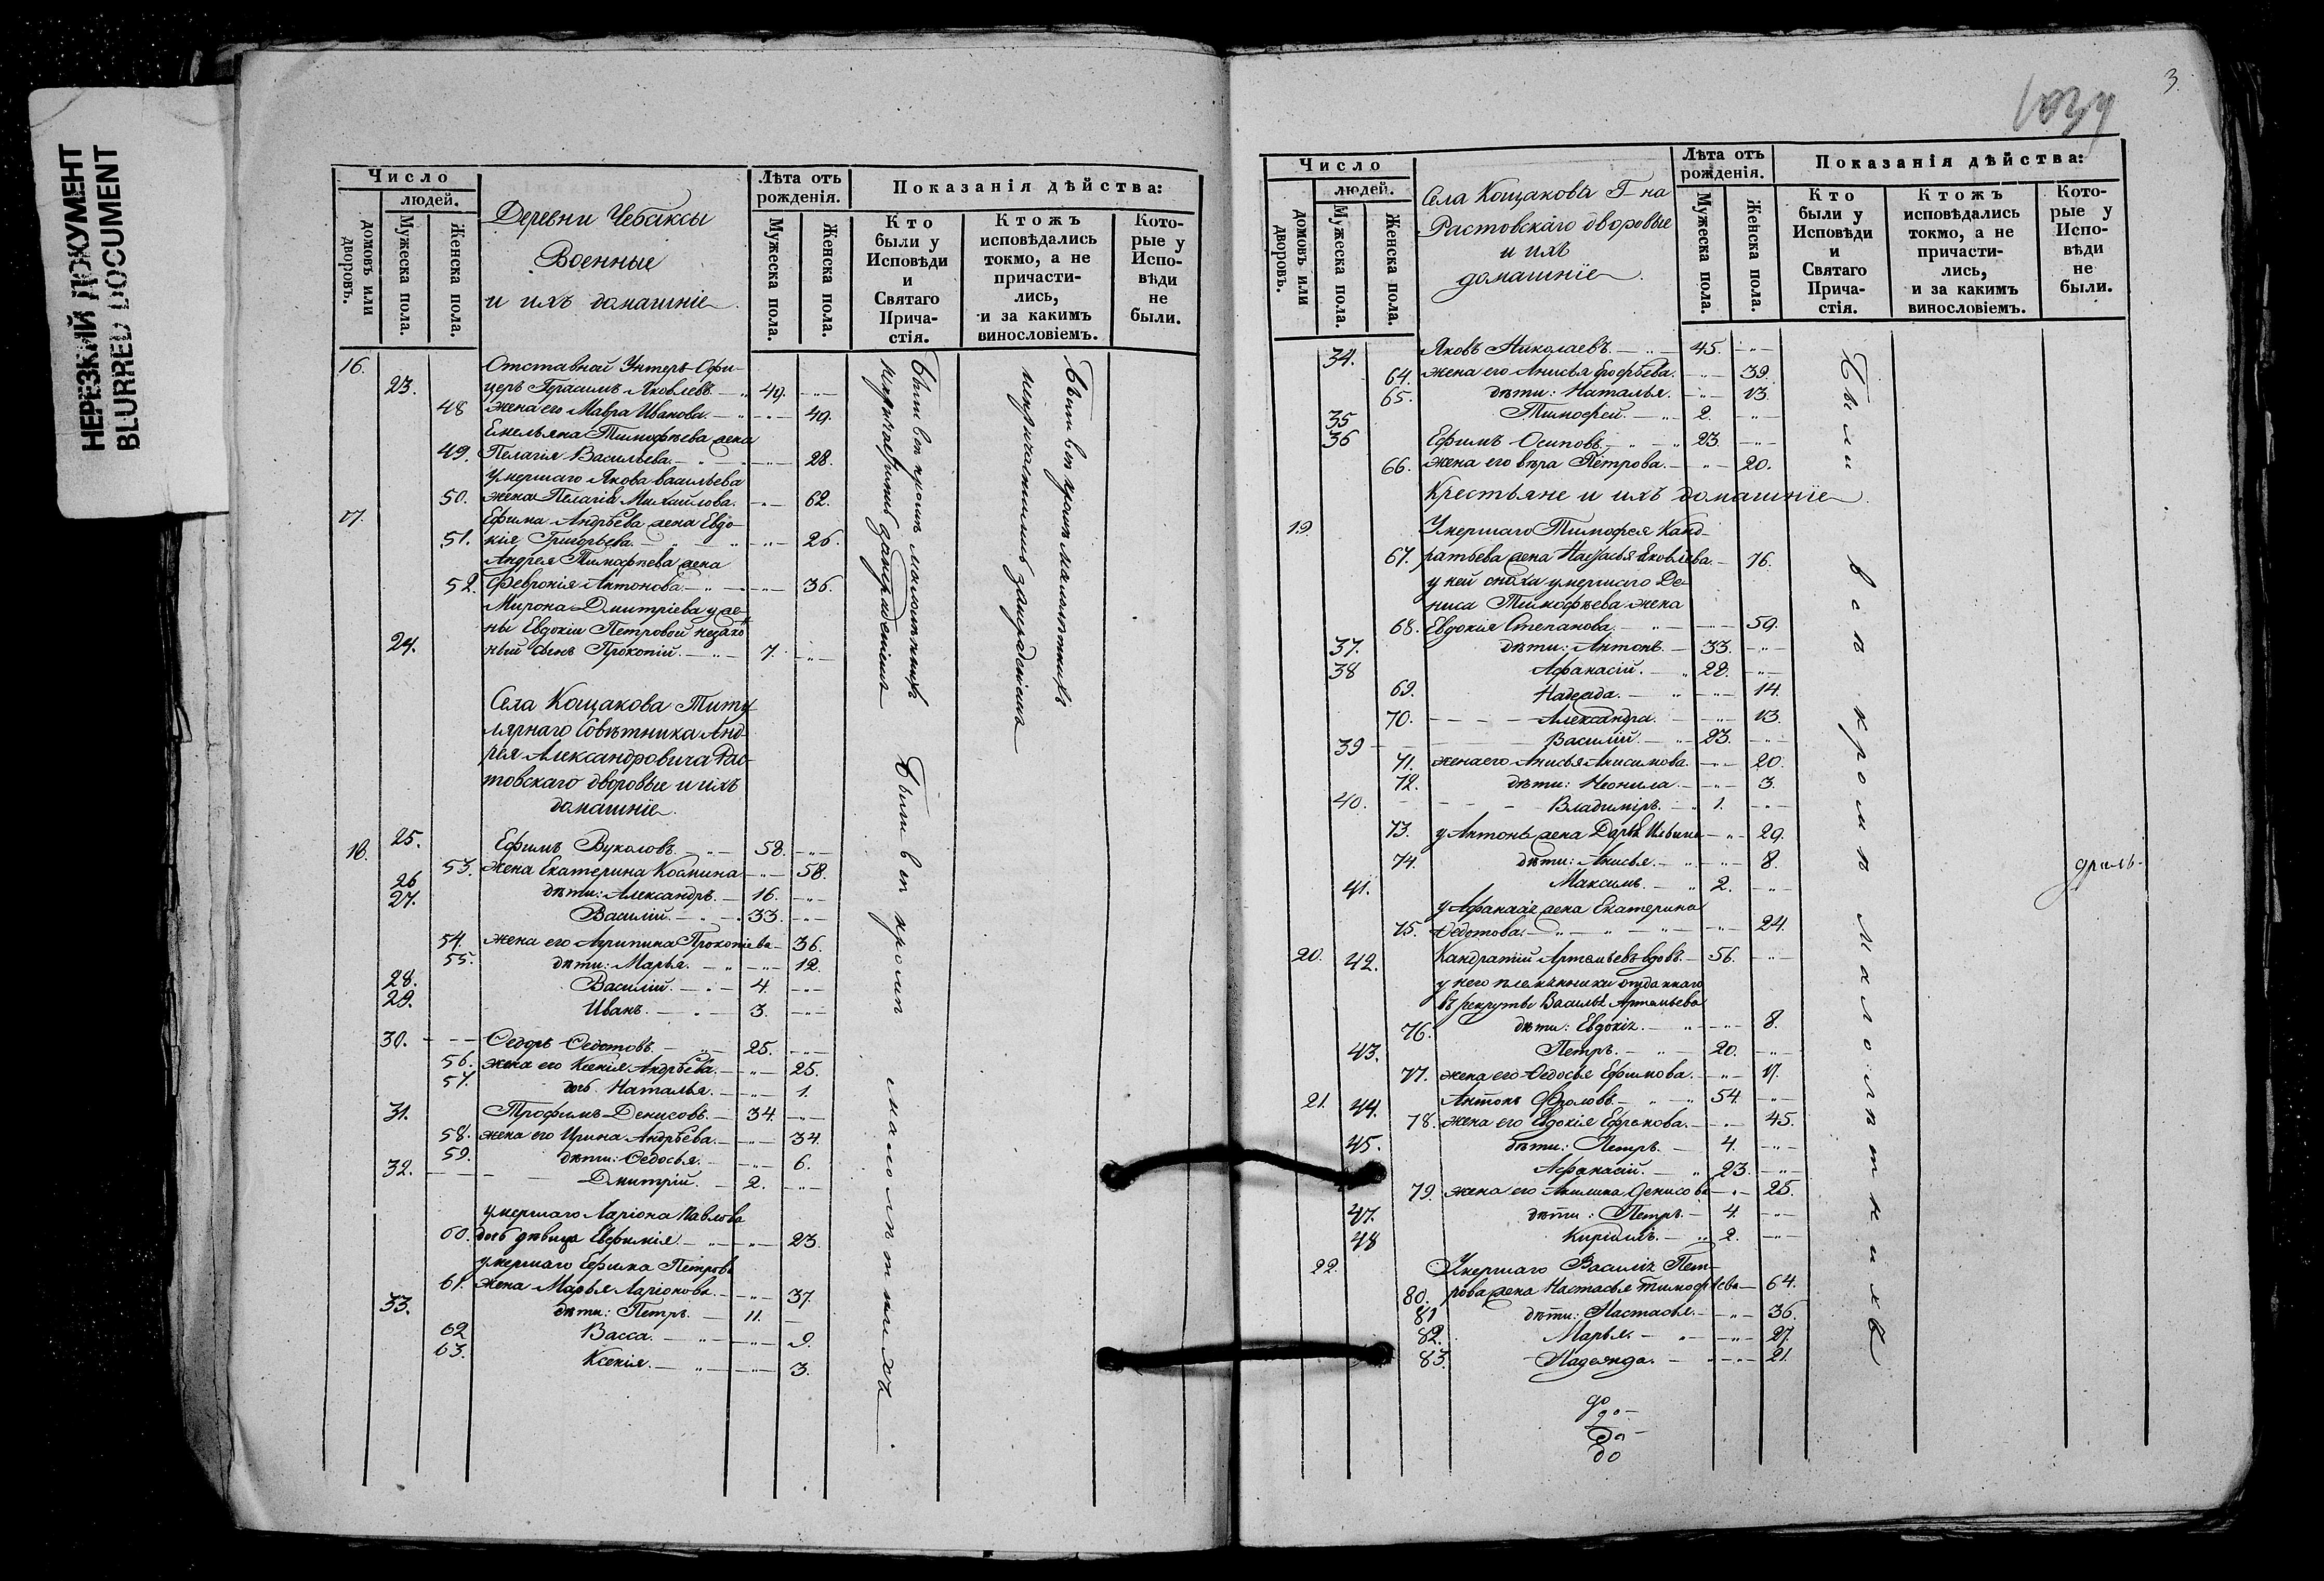 НЕРЕЗКИЙ ДОКУМЕНТ
BLURRED DOCUMENT
Число
людей.
домовъ или дворовъ.
Мужеска пола.
Женска пола.
Деревни Чебаксы
Военные
и ихъ домашніе
Лѣта отъ рожденія.
Мужеска пола.
Женска пола.
Показанія дѣйства:
Кто были у Исповѣди и Святаго Причастія.
Ктожъ исповѣдались токмо, а не причастились, и за какимъ винословіемъ.
Которые у Исповѣди не были.
16. Отставной Унтеръ-Офи-
23. церъ Герасимъ Яковлевъ. — 49.
48 жена его Мавра Иванова. — 49.
Емельяна Тимофѣева жена
49. Пелагія Васильева. — 28.
Умершаго Якова Васильева
50. жена Пелагія Михайлова. — 62.
17. Ефима Андрѣева жена Евдо-
51. кія Григорьева. — 26.
Андрея Тимофѣева жена
52. Февронія Антонова. — 36.
Мирона Дмитріева у же-
ны Евдокіи Петровой незакон
24. ный сынъ Прокопій. — 7.
Села Кощакова Титу
лярнаго Совѣтника Анд-
рея Александровича Рас-
товскаго дворовые и ихъ
домашніе.
18. 25. Ефимъ Вуколовъ. — 58.
53. жена Екатерина Космина — 58.
26 дѣти: Александръ. — 16.
27. Василій. — 33.
54. жена его Агрипина Прокопіева — 36.
55. дѣти: Марья. — 12.
28. Василій. — 4.
29. Иванъ. — 3.
30. Ѳедоръ Ѳедотовъ. — 25.
56. жена его Ксенія Андрѣева. — 25.
57. дочь Наталья. — 1.
31. Трофимъ Денисовъ. — 34.
58. жена его Ирина Андрѣева. — 34.
59. дѣти: Ѳедосья. — 6.
32. Дмитрій. — 2.
умершаго Ларіона Павлова
60. дочь дѣвица Евфимія. — 23.
умершаго Ефима Петрова
61. жена Марья Ларіонова. — 37.
33. дѣти: Петръ. — 11.
62 Васса. — 9.
63. Ксенія. — 3.
Были вси кромѣ малолѣтнихъ
Были вси кромѣ малолѣтнихъ
Были вси кромѣ малолѣтнихъ.
3
Число
людей.
домовъ или дворовъ.
Мужеска пола.
Женска пола.
Села Кощакова Г-на
Растовскаго дворовые
и ихъ
домашніе.
Лѣта отъ рожденія.
Мужеска пола.
Женска пола.
Показанія дѣйства:
Кто были у Исповѣди и Святаго Причастія.
Ктожъ исповѣдались токмо, а не причастились, и за какимъ винословіемъ.
Которые у Исповѣди не были.
34. Яковъ Николаевъ. — 45.
64. жена его Анисья — 39.
65. дѣти: Наталья. — 13.
35 Тимофей. — 2.
36 Ефимъ Осиповъ. — 23.
66. жена его Вѣра Петрова. — 20.
Крестьяне и ихъ домашніе.
19. Умершаго Тимофея Канд-
67. ратьева жена Настасья Яковлева. — 76.
у ней сноха умершаго Де-
ниса Тимофѣева жена
68. Евдокія Степанова. — 59.
37. дѣти: Антонъ. — 33.
38 Афанасій. — 28.
69. Надежда. — 14.
70. Александра. — 13.
39 Василій. — 23.
71. жена его Анисья Анисимова. — 20.
72. дѣти: Неонила. — 3.
40. Владиміръ. — 1.
73. у Антона жена Дарья Ильина — 29.
74. дѣти: Анисья. — 8.
41. Максимъ. — 2.
у Афанасія жена Екатерина
75. Ѳедотова. — 24.
20. 42. Кандратій Артемьевъ вдовъ. — 56.
у него племянники отданнаго
въ рекруты Василья Артемьева
76. дѣти: Евдокія. — 8.
43. Петръ. — 20.
77. жена его Ѳедосья Ефимова. — 17.
21. 44. Антонъ Фроловъ. — 54.
78. жена его Евдокія — 45.
45. дѣти: Петръ. — 4.
Афанасій. — 23.
79. жена его Акилина Денисова — 25.
47. дѣти: Петръ. — 4.
48 Кириллъ. — 2.
22. Умершаго Василья Пет-
80. рова жена Настасья Тимофѣева — 64.
81 дѣти: Настасья. — 36.
82. Марья. — 27.
83. Надежда. — 21.
Были вси кромѣ малолѣтнихъ